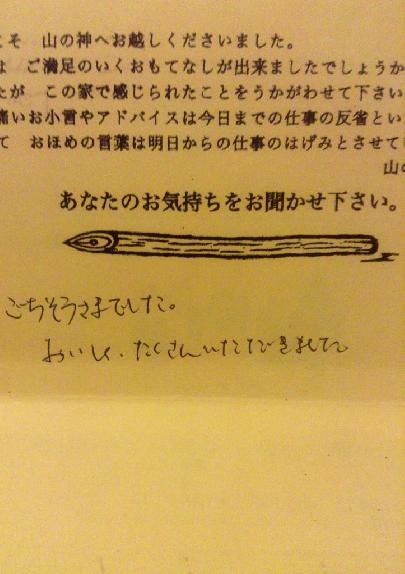 こそ 山の神へお越しくださいました。
は ご満足のいくおもてなしが出来ましたでしょうか
たが この家で感じられたことをうかがわせて下さい
痛いお小言やアドバイスは今日までの仕事の反省とい
て おほめの言葉は明日からの仕事のはげみとさせて
山の
あなたのお気持ちをお聞かせ下さい。
ごちそうさまでした。
おいしく、たくさんいただきました。